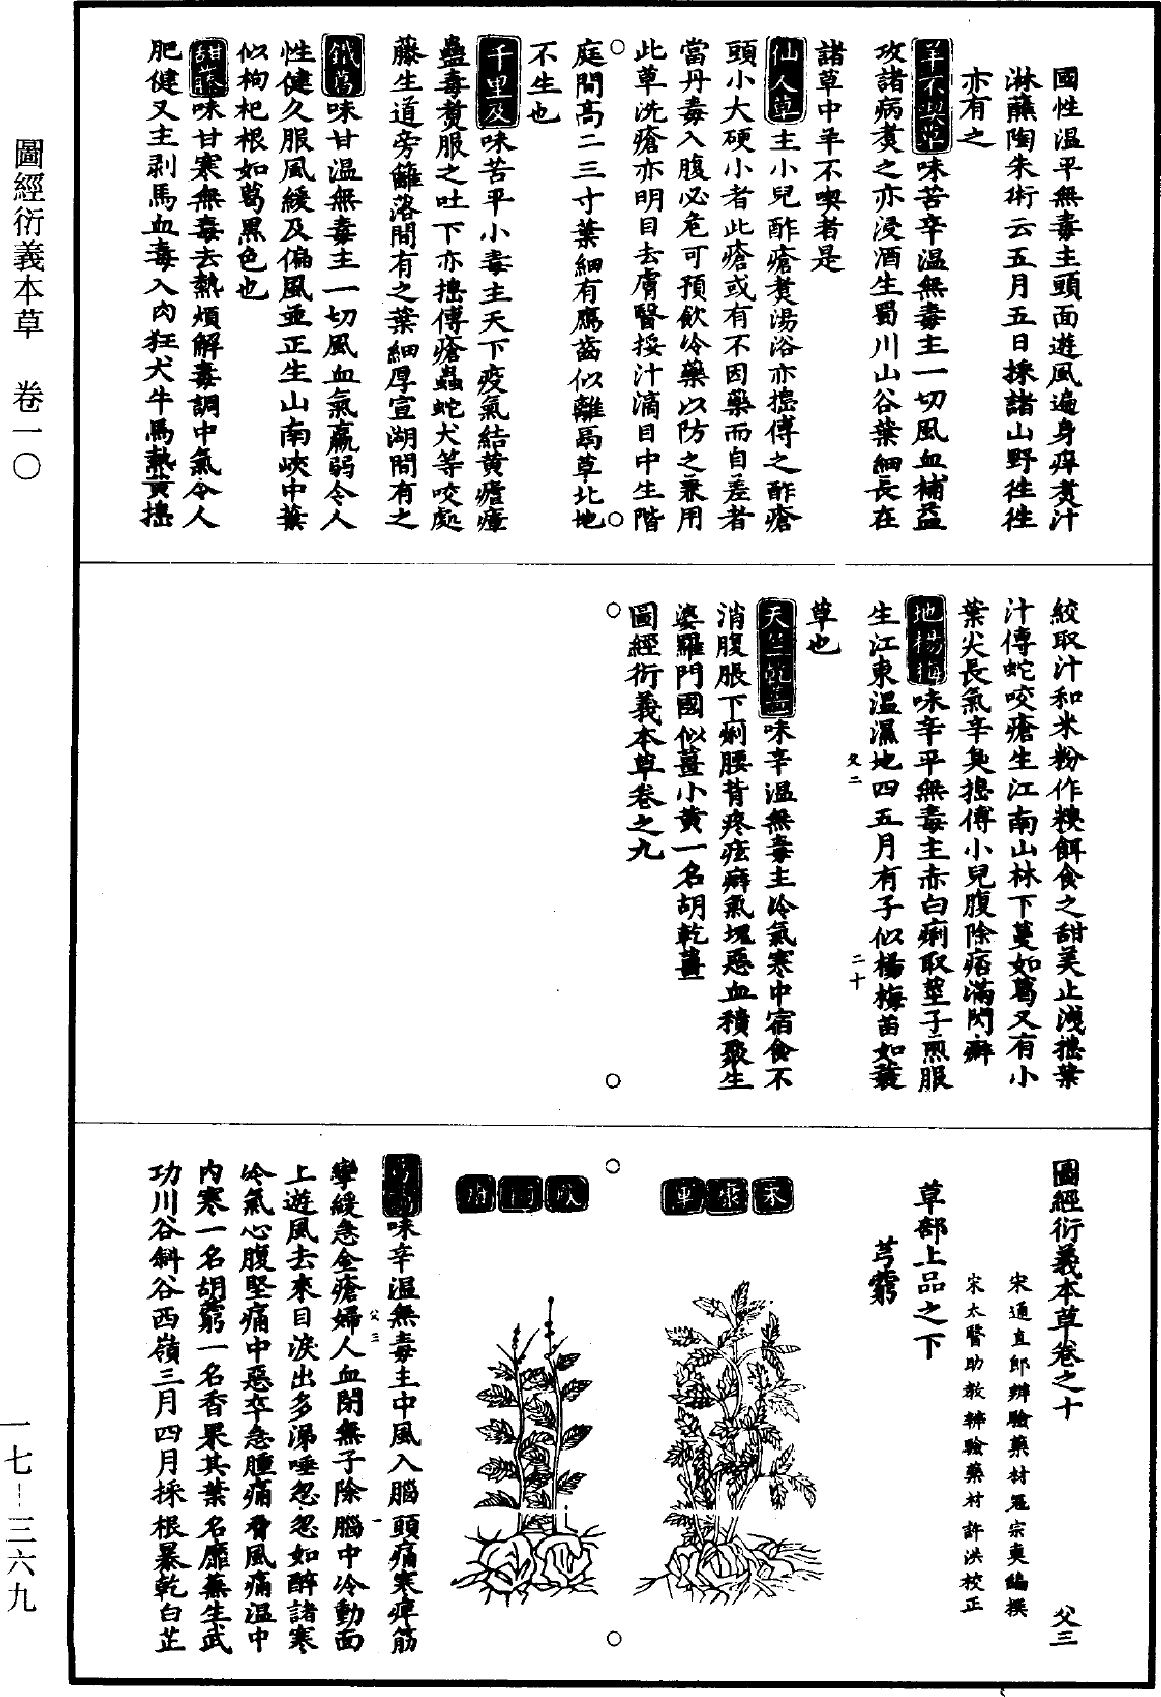 圖經衍義本草 卷一〇
國性溫平無毒主頭面遊風遍身痒煑汁
淋蘸陶朱術云五月五日採諸山野往往
亦有之
羊不喫草味苦辛溫無毒主一切風血補益
攻諸病煑之亦浸酒生蜀川山谷葉細長在
諸草中羊不喫者是
仙人草主小兒酢瘡煑湯浴亦搗傅之酢瘡
頭小大硬小者此瘡或有不因藥而自差者
當丹毒入腹必危可預飲冷藥以防之兼用
此草洗瘡亦明目去膚瞖挼汁滴目中生階
庭間高二三寸葉細有鴈齒似離鬲草北地
不生也
千里及味苦平小毒主天下疫氣結黃瘧瘴
蠱毒煑服之吐下亦搗傅瘡蟲蛇犬等咬處
藤生道旁籬落間有之葉細厚宣湖間有之
鐵葛味甘溫無毒主一切風血氣羸弱令人
性健久服風緩及偏風並正生山南峽中葉
似枸杞根如葛黑色也
甜藤味甘寒無毒去熱煩解毒調中氣令人
肥健又主剥馬血毒入肉狂犬牛馬熱黃搗
絞取汁和米粉作糗餌食之甜美止洩搗葉
汁傅蛇咬瘡生江南山林下蔓如葛又有小
葉尖長氣辛臭搗傅小兒腹除痞滿閃癖
地楊梅味辛平無毒主赤白痢取莖子煎服
生江東溫濕地四五月有子似楊梅苗如蓑
草也
父二
二十
天竺乾薑味辛溫無毒主冷氣寒中宿食不
消腹脹下痢腰背疼痃癖氣塊惡血積聚生
婆羅門國似薑小黃一名胡乾薑
圖經衍義本草卷之九
圖經衍義本草卷之十
父三
宋通直郎辨驗藥材寇宗奭編撰
宋太醫助教辨驗藥材許洪校正
草部上品之下
芎藭
永康軍
芎藭味辛溫無毒主中風入腦頭痛寒痺筋
攣緩急金瘡婦人血閉無子除腦中冷動面
上遊風去來目淚出多涕唾忽忽如醉諸寒
冷氣心腹堅痛中惡卒急腫痛脅風痛溫中
內寒一名胡藭一名香果其葉名蘼蕪生武
功川谷斜谷西嶺三月四月採根暴乾白芷
父三
一
一七－三六九